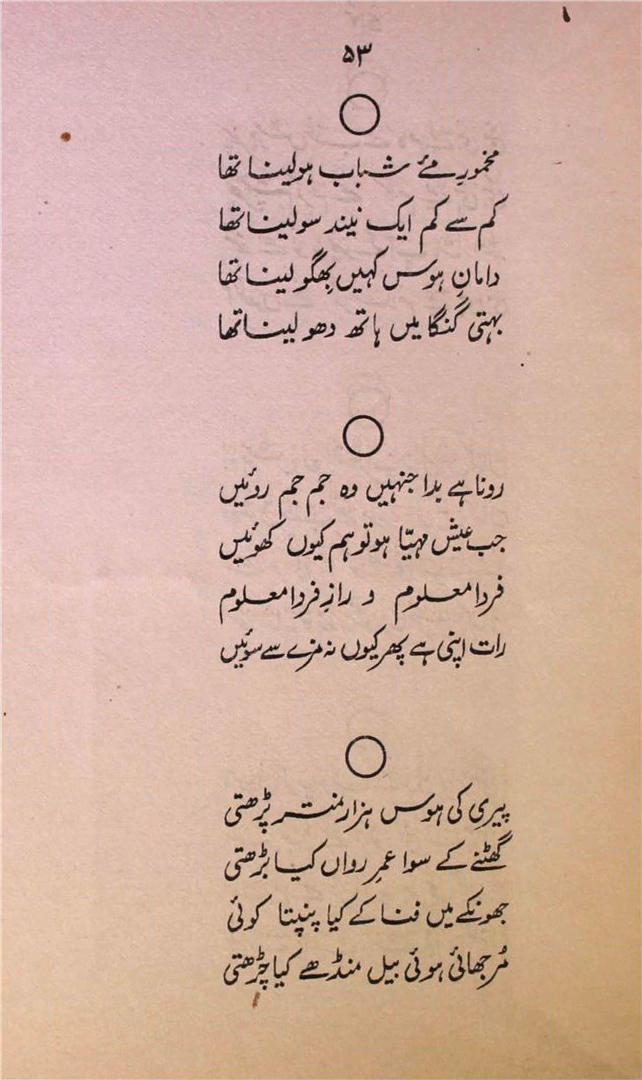 ۵۳
مخمورِ مئے شباب ہولینا تھا
کم سے کم ایک نیند سولینا تھا
دامانِ ہوس کہیں بِھگو لینا تھا
بہتی گنگا میں ہاتھ دھو لینا تھا
رونا ہے بدا جنہیں وہ جم جم روئیں
جب عیش مہیّا ہو تو ہم کیوں کھوئیں
فردا معلوم و رازِ فردا معلوم
رات اپنی ہے پھر کیوں نہ مزے سے سوئیں
پیری کی ہوس ہزار منتر پڑھتی
گھٹنے کے سوا عمرِ رواں کیا بڑھتی
جھونکے میں فنا کے کیا پنپتا کوئی
مُرجھائی ہوئی بیل منڈھے کیا چڑھتی